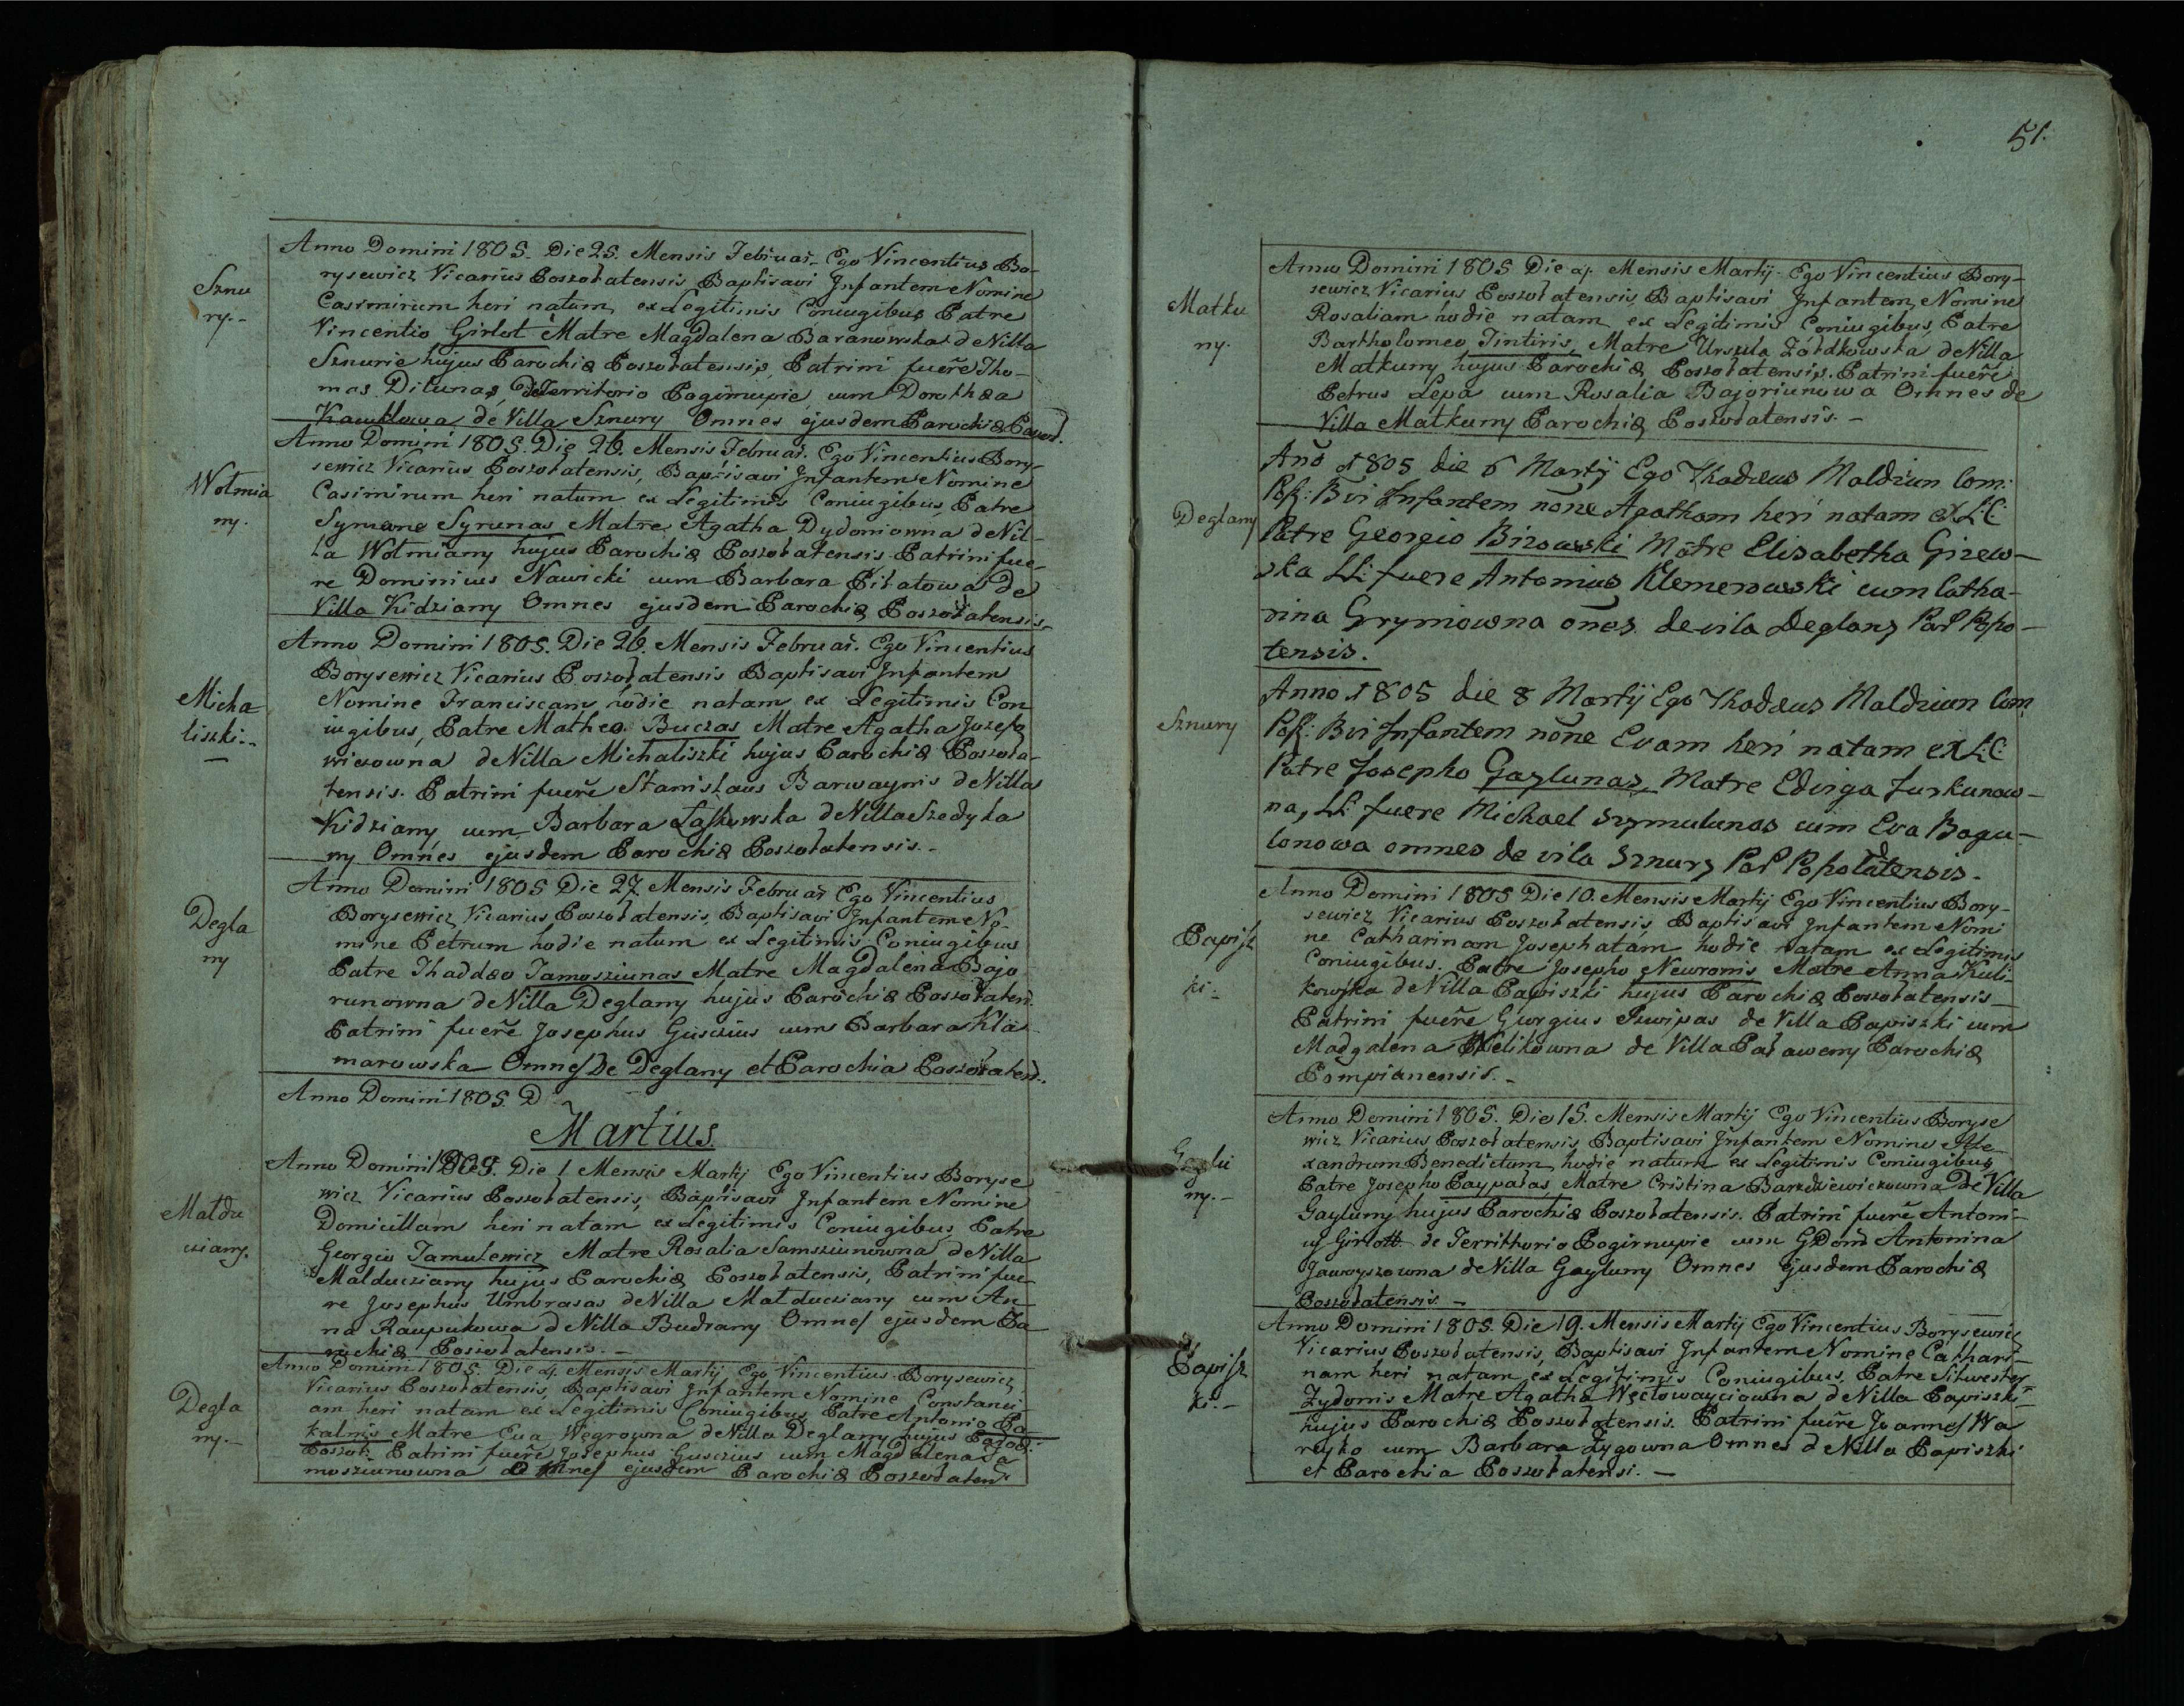 Sznu
ry.-
Anno Domini 1805. Die 25. Mensis Februar. Ego Vincentius Bo-
rysewicz Vicarius Poszołatensis Baptisavi Infantem Nomine
Casimirum heri natum ex Legitimis Coniugibus Patre
Vincentio Girlot Matre Magdalena Baranowska de Villa
Sznurie hujus Parochiæ Poszołatensis, Patrini fuere Tho-
mas Dilunas, de Territorio Pogirnupie cum Dorothæa
de Villa Sznury Omnes ejusdem Parochiæ
Wołmia
ny.
Anno Domini 1805. Die 26. Mensis Februar. Ego Vincentius Bory-
sewicz Vicarius Poszołatensis, Baptisavi Infantem Nomine
Casimirum heri natum ex Legitimis Coniugibus Patre
Symone Syrunas Matre Agatha Dydoniowna de Vil-
la Wołmiany hujus Parochiæ Poszołatensis Patrini fue-
re Dominicus Nawicki cum Barbara Piłatowa De
Villa Kidziany Omnes ejusdem Parochiæ Poszołatensis
Micha
liszki.-
Anno Domini 1805. Die 26. Mensis Februar. Ego Vincentius
Borysewicz Vicarius Poszołatensis Baptisavi Infantem
Nomine Franciscam hodie natam ex Legitimis Con
iugibus, Patre Matheo Buczas Matre Agatha Jozefo
wiczowna de Villa Michaliszki hujus Parochiæ Poszoła-
tensis. Patrini fuere Stanislaus Barwaynis de Villa
Kidziany cum Barbara Laszkowska de Villa Szedyka
ny Omnes ejusdem Parochiæ Poszołatensis.-
Degla
ny
Anno Domini 1805 Die 27. Mensis Februar Ego Vincentius
Borysewicz Vicarius Poszołatensis, Baptisavi Infantem No-
mine Petrum hodie natum ex Legitimis Coniugibus
Patre Thaddæo Tamosziunas Matre Magdalena Bajo
runowna de Villa Deglany hujus Parochiæ Poszołaten.
Patrini fuere Josephus Guscius cum Barbara Kla-
marowska Omnes De Deglany et Parochia Poszołaten.
Anno Domini 1805. D
Martius.
Małdu
cziany.
Anno Domini 1805. Die 1 Mensis Martij Ego Vincentius Boryse
wicz Vicarius Poszołatensis, Baptisavi Infantem Nomine
Domicillam heri natam ex Legitimis Coniugibus Patre
Georgio Tamulewicz Matre Rosalia Samsziunowna de Villa
Małducziany hujus Parochiæ Poszołatensis, Patrini fue-
re Josephus Umbrasas de Villa Małducziany cum An-
na Raupukowa de Villa Budrany Omnes ejusdem Pa
rochiæ Poszołatensis.-
Degla
ny.-
Anno Domini 1805. Die 4. Mensis Martij Ego Vincentius Borysewicz
Vicarius Poszołatensis, Baptisavi Infantem Nomine Constanci
am heri natam ex Legitimis Coniugibus Patre Antonio Pa-
kalnis Matre Eva Węgrowna de Villa Deglany hujus Paroch:
Poszoł: Patrini fuere Josephus Guscius cum Magdalena Ta
moszunowna Omnes ejusdem Parochiæ Poszołaten
51.
Matku
ny.
Anno Domini 1805 Die 4. Mensis Martij Ego Vincentius Bory-
sewicz Vicarius Poszołatensis Baptisavi Infantem Nomine
Rosaliam hodie natam ex Legitimis Coniugibus Patre
Bartholomeo Tintiris, Matre Urszula Zołdkowska de Villa
Matkuny hujus Parochiæ Poszołatensis. Patrini fuere
Petrus Lepa cum Rosalia Bajoriunowa Omnes de
Villa Matkuny Parochiæ Poszołatensis.-
Deglany
Año 1805 die 6 Martij Ego Thadeus Maldziun Com:
Poß: Bvi Infantem nõne Agatham heri natam ex L:C:
Patre Georgio Birowski Matre Elisabetha Girew-
ska LL fuere Antonius Klemerowski cum Catha-
rina Grymowna oñes de vila Deglany Par Popo-
tensis.
Sznury
Anno 1805 die 8 Martij Ego Thadeus Maldziun Com
Poß: Bvi Infantem nõne Evam heri natam ex L:C:
Patre Josepho Gaylunas, Matre Edviga Jurkunow-
na, LL fuere Michael Szymulunas cum Eva Bagu-
lonowa omnes de vila Sznury Par Popołatensis.
Papisz
ki.-
Anno Domini 1805 Die 10. Mensis Martij Ego Vincentius Bory-
sewicz Vicarius Poszołatensis, Baptisavi Infantem Nomi
ne Catharinam Josephatam hodie natam ex Legitimis
Coniugibus. Patre Josepho Newronis Matre Anna Kuli-
kowska de Villa Papiszki hujus Parochiæ Poszołatensis
Patrini fuere Giorgius Szwipas de Villa Papiszki cum
Madgalena Melikowna de Villa Paławeny Parochiæ
Pompianensis.-
Gaylu
ny.-
Anno Domini 1805. Die 15. Mensis Martij Ego Vincentius Boryse
wicz Vicarius Poszołatensis, Baptisavi Infantem Nomine Ale-
xandrum Benedictum hodie natum ex Legitimis Coniugibus
Patre Josepho Paypałas Matre Cristina Bardziewiczowna De Villa
Gayluny hujus Parochiæ Poszołatensis. Patrini fuere Antoni-
us Girlott de Territhorio Pogirnupie cum GDom Antonina
Jaworszowna de Villa Gayluny Omnes ejusdem Parochiæ
Poszołatensis.-
Papisz
ki.-
Anno Domini 1805. Die 19. Mensis Martij Ego Vincentius Borysewicz
Vicarius Poszołatensis, Baptisavi Infantem Nomine Cathari-
nam heri natam ex Legitimis Coniugibus, Patre Silwester
Zydonis Matre Agatha Węctowayciowna de Villa Papiszki
hujus Parochiæ Poszołatensis. Patrini fuere Joannes Wa
reyko cum Barbara Zygowna Omnes de Villa Papiszki
et Parochia Poszołatensi.-